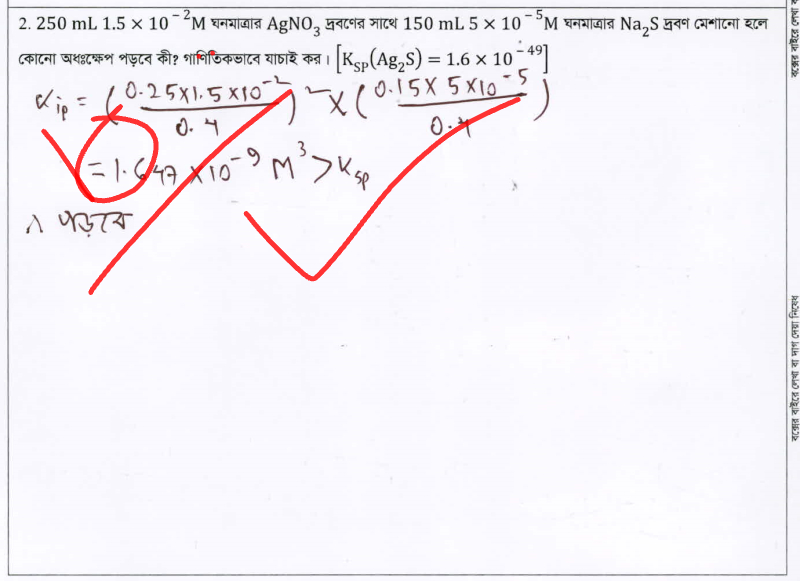 2. 250 mL 1.5 × 10⁻²M ঘনমাত্রার AgNO₃ দ্রবণের সাথে 150 mL 5 × 10⁻⁵M ঘনমাত্রার Na₂S দ্রবণ মেশানো হলে
কোনো অধঃক্ষেপ পড়বে কী? গাণিতিকভাবে যাচাই কর। [K_SP(Ag₂S) = 1.6 × 10⁻⁴⁹]
K_ip = (0.25×1.5×10⁻²/0.4)² × (0.15×5×10⁻⁵/0.4)
= 1.647×10⁻⁹ M³ > K_sp
∴ পড়বে
বক্সের বাইরে লেখা বা দাগ দেয়া নিষেধ